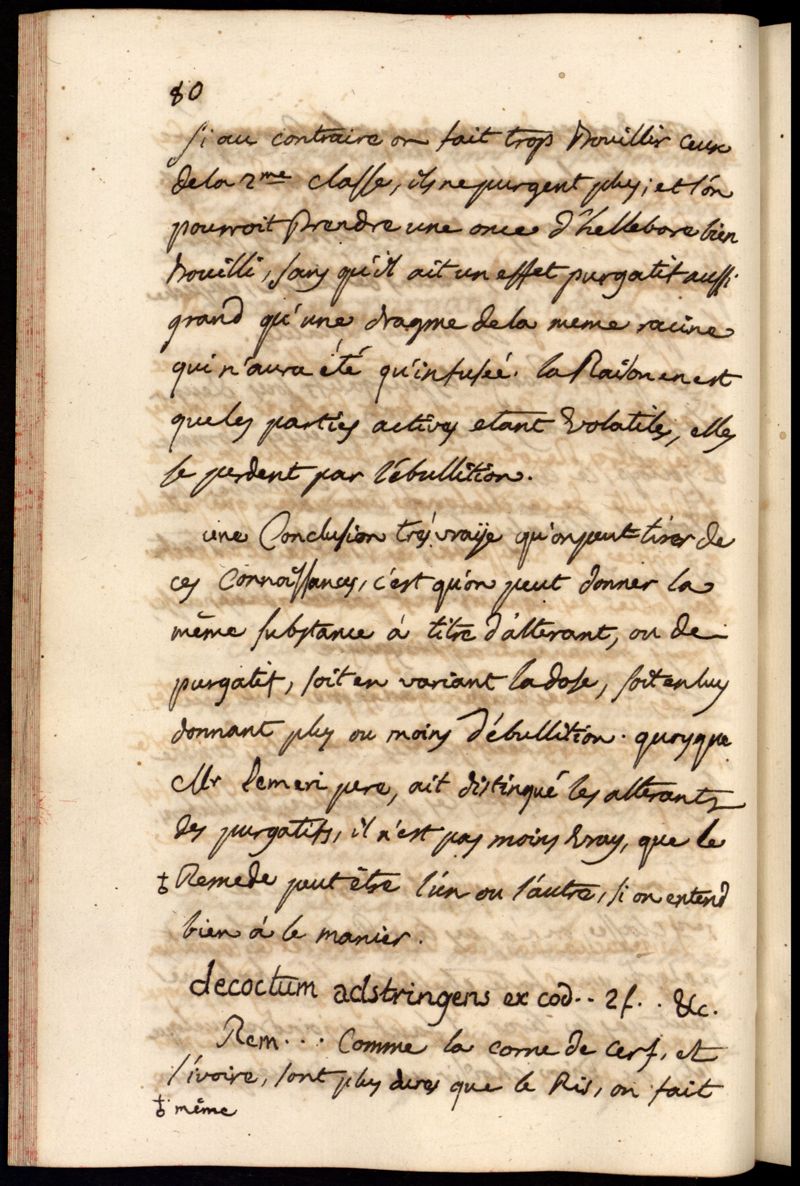 80
si au contraire on fait trop bouillir ceux
de la 2me classe, ils ne purgent plus; et l'on
pourroit prendre une once d'hellebore bien
bouilli, sans qu'il ait un effet purgatif aussi
grand qu'une dragme de la meme racine
qui n'aura été qu'infusée. la Raison en est
que les parties actives etant volatiles, elles
se perdent par l'ébullition.
une Conclusion trés vraije qu'on peut tirer de
ces Connoissances, c'est qu'on peut donner la
même substance á titre d'alterant, ou de
purgatif, soit en variant la dose, soit en luy
donnant plus ou moins d'ébullition. quoyque
Mr lemeri pere, ait distinqué les alterants
des purgatifs, il n'est pas moins vray, que le
♁ Remede peut être l'un ou l'autre, si on entend
bien á le manier.
decoctum adstringens ex cod.. 2f. . &c.
Rem... Comme la corne de cerf, et
l'ivoire, sont plus dures que le Ris, on fait
♁ même